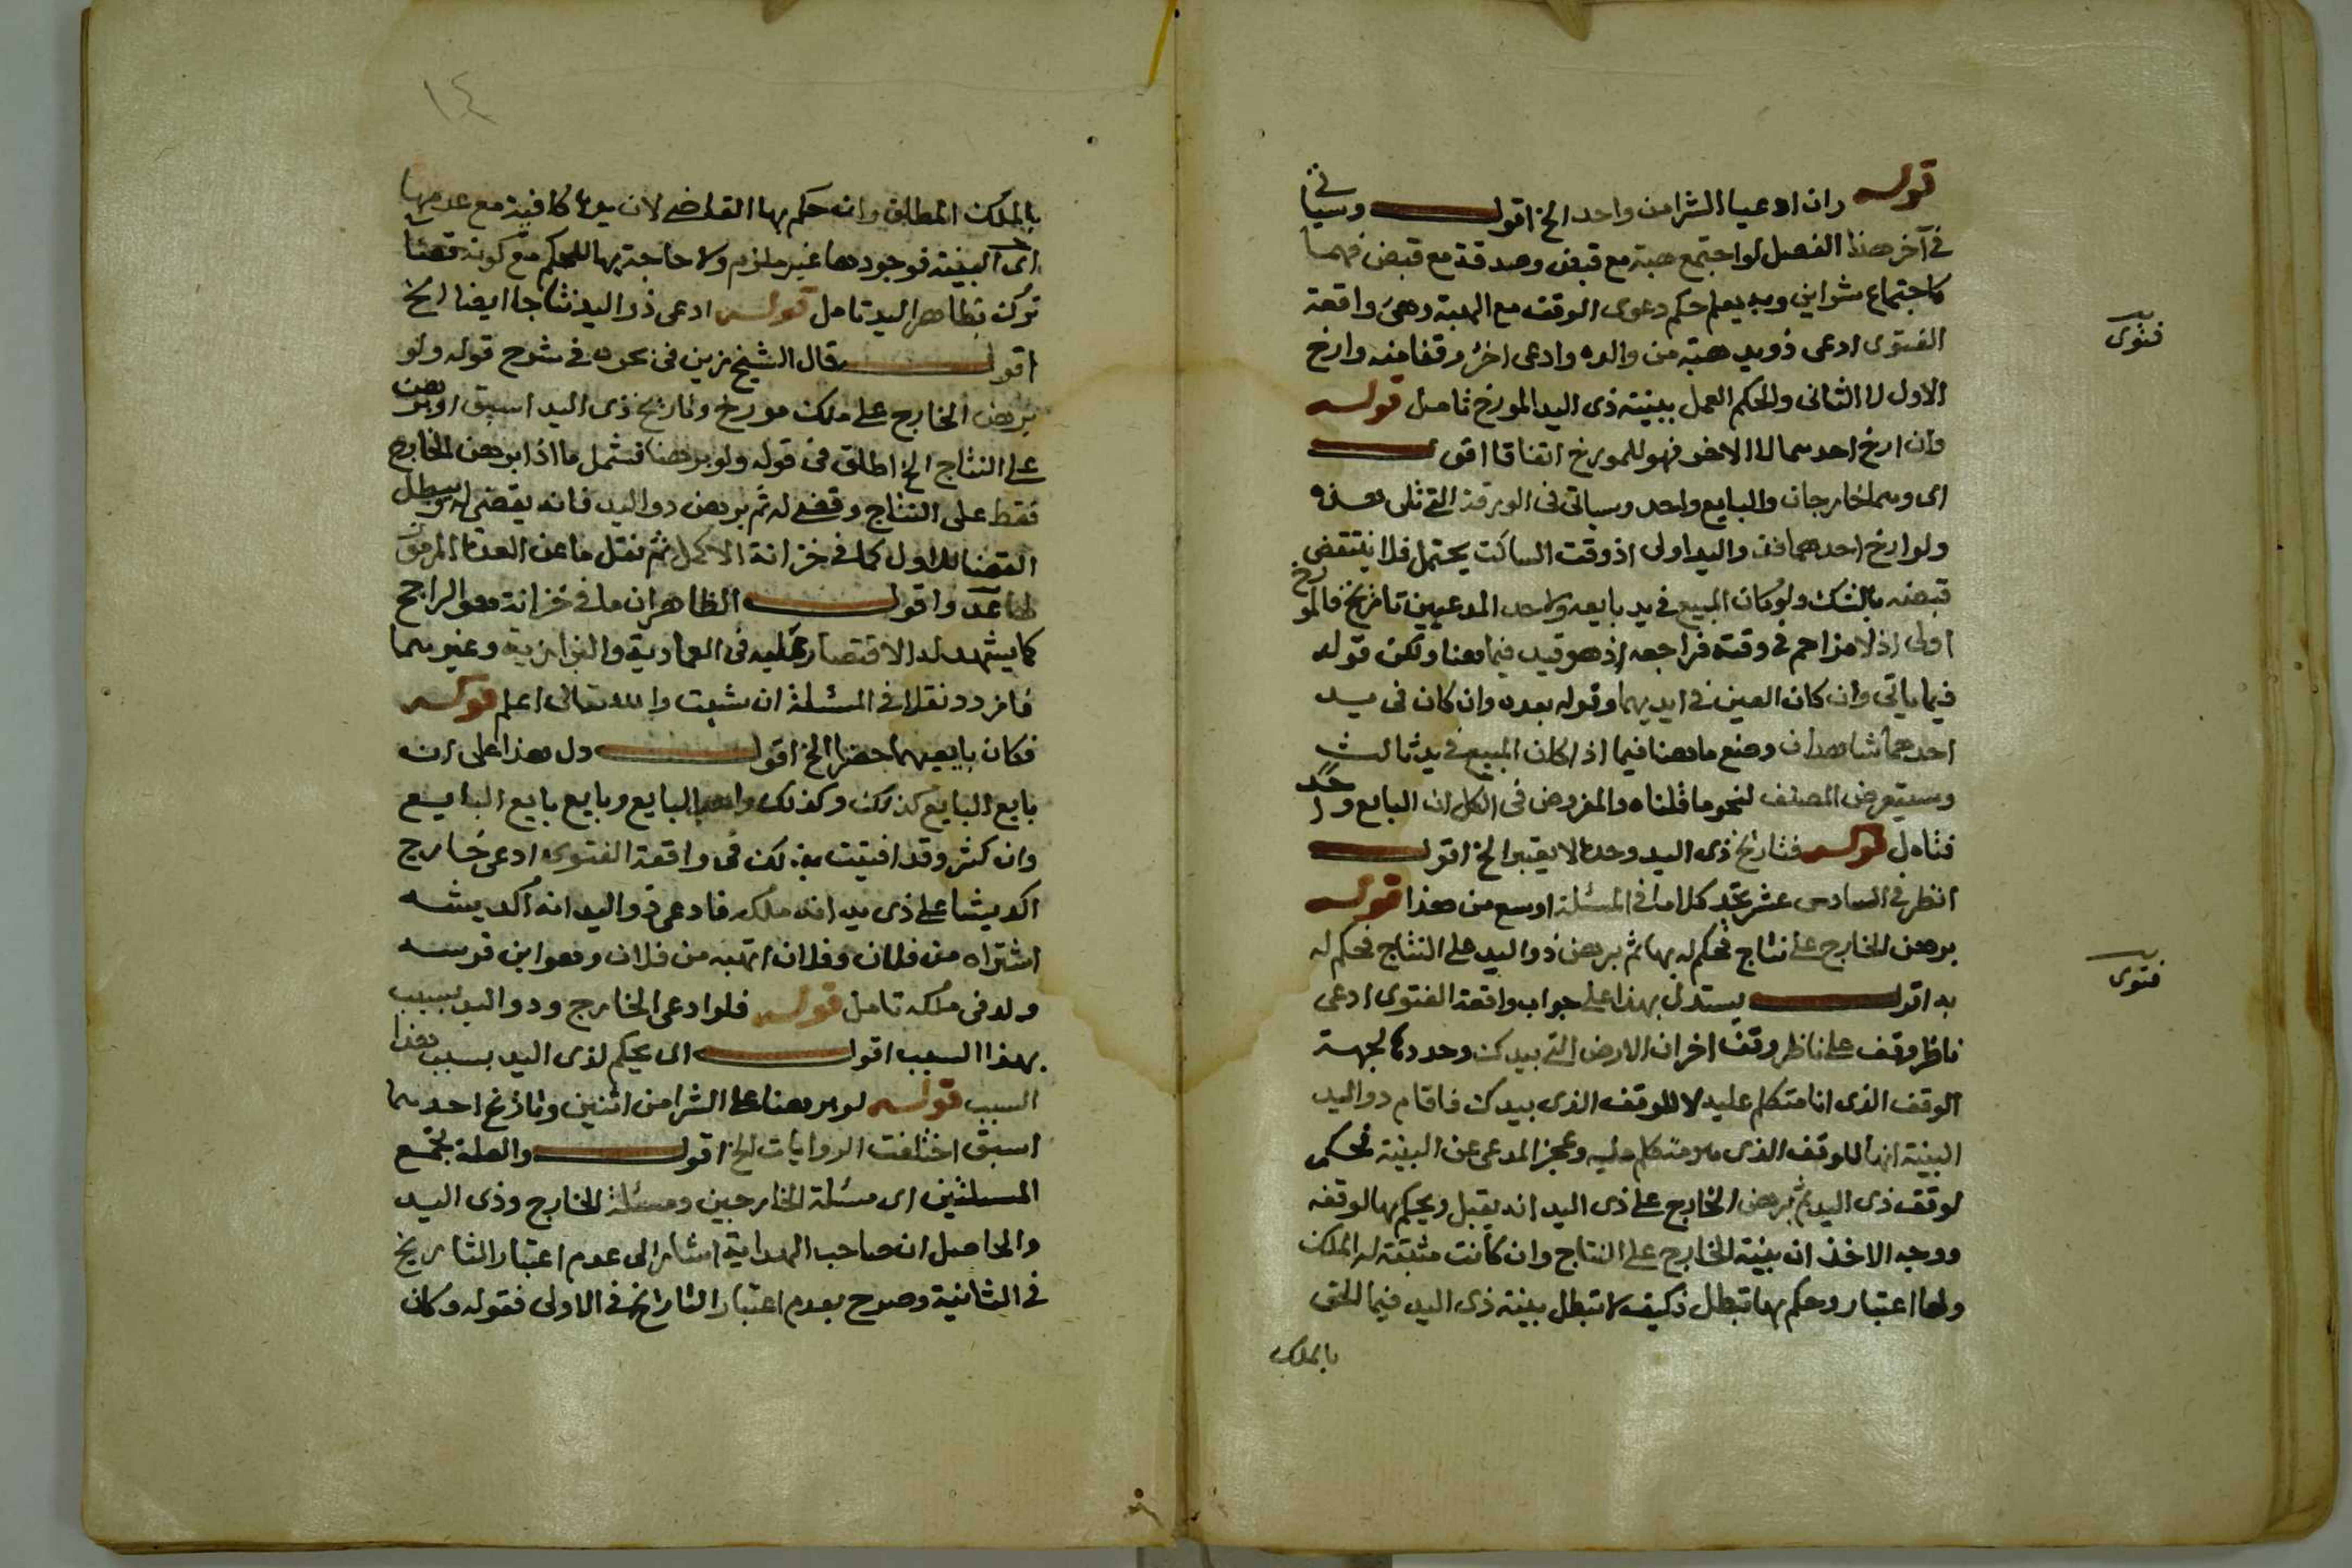 قوله وان ادعيا الشرا من واحد الخ اقول وسياتي
في آخر هذا الفصل لو اجتمع هبة مع قبض وصدقة مع قبض فهما
كاجتماع شراين وبه يعلم حكم دعوى الوقف مع الهبة وهي واقعة
الفتوى ادعى ذويد هبة من والده وادعى اخر وقفا منه وارخ
الاول لا الثاني والحكم العمل ببينة ذي اليد المورخ تامل قوله
وان ارخ احدهما لا الاخر فهو للمورخ اتفاقا اقول
اى وهما خارجان والبايع واحد وسياتي في الورقة التي تلى هذه
ولو ارخ احدهما فذو اليد اولى اذ وقت الساكت يحتمل فلا ينتقض
قبضه بالشك ولو كان المبيع في يد بايعه ولاحد المدعيين تاريخ فالمورخ
اولى اذ لا مزاحم في وقته فراجعه اذ هو قيد فيما هنا ولكن قوله
فيما ياتي وان كان العين في ايديهما وقوله بعده وان كان في يد
احدهما شاهدان وضع ما هنا فيما اذا كان المبيع في يد ثالث
وسيتعرض المصنف لنحو ما قلناه والمفروض في الكل ان البايع واحد
فتامل قوله فتاريخ ذي اليد وحده لا يعتبر الخ اقول
انظر في السادس عشر تجد كلاما في المسئلة اوسع من هذا قوله
برهن الخارج على نتاج فحكم له بها ثم برهن ذو اليد على النتاج فحكم له
به اقول يستدل بهذا على جواب واقعة الفتوى ادعى
ناظر وقف على ناظر وقف اخر ان الارض التي بيدك وحددها لجهة
الوقف الذي انا متكلم عليه لا للوقف الذي بيدك فاقام ذو اليد
البينة انها للوقف الذي هو متكلم عليه وعجز المدعى عن البينة فحكم
لوقف ذي اليد ثم برهن الخارج على ذي اليد انه يقبل ويحكم بها لوقفه
ووجه الاخذ ان بينة الخارج على النتاج وان كانت مثبتة له الملك
ولها اعتبار وحكم بها تبطل فكيف لا تبطل بينة ذي اليد فيما الحق
بالملك
فتوى
فتوى
١٤
بالملك المطلق وان حكم بها القاضي لان يده كافية مع عدمها
اى البينة فوجودها غير ملزم ولا حاجة بها للحكم مع كونه قضا
ترك بظاهر اليد تامل قوله ادعى ذو اليد نتاجا ايضا الخ
اقول قال الشيخ زين في بحره في شرح قوله ولو
برهن الخارج على ملك مورخ وتاريخ ذي اليد اسبق او برهن
على النتاج الخ اطلق في قوله ولو برهنا فشمل ما اذا برهن الخارج
فقط على النتاج وقضى له ثم برهن ذو اليد فانه يقضى له ويبطل
القضا للاول كما في خزانة الاكمل ثم نقل ما عن العدة المرموز
لها عد واقول الظاهر ان ما في خزانة هو الراجح
كما يشهد له الاقتصار عليه في العمادية والبزازية وغيرهما
فازدد نقلا في المسئلة ان شيت والله تعالى اعلم قوله
فكان بايعيهما حضرا الخ اقول دل هذا على ان
بايع البايع كذلك وكذلك واهب البايع وبايع بايع البايع
وان كثر وقد افتيت به لك في واقعة الفتوى ادعى خارج
اكديشا على ذي يد انه ملكه فادعى ذو اليد انه اكديشه
اشتراه من فلان وفلان اتهبه من فلان وهو ابن فرسه
ولد في ملكه تامل قوله فلو ادعى الخارج وذو اليد بسبب
بهذا السبب اقول اى يحكم لذي اليد بسبب هذا
السبب قوله لو برهنا على الشرا من اثنين وتاريخ احدهما
اسبق اختلفت الروايات الخ اقول والعلة تجمع
المسلتين اى مسئلة الخارجين ومسئلة الخارج وذي اليد
والحاصل ان صاحب الهداية اشار الى عدم اعتبار التاريخ
في الثانية وصرح بعدم اعتبار التاريخ في الاولى فقوله وكان